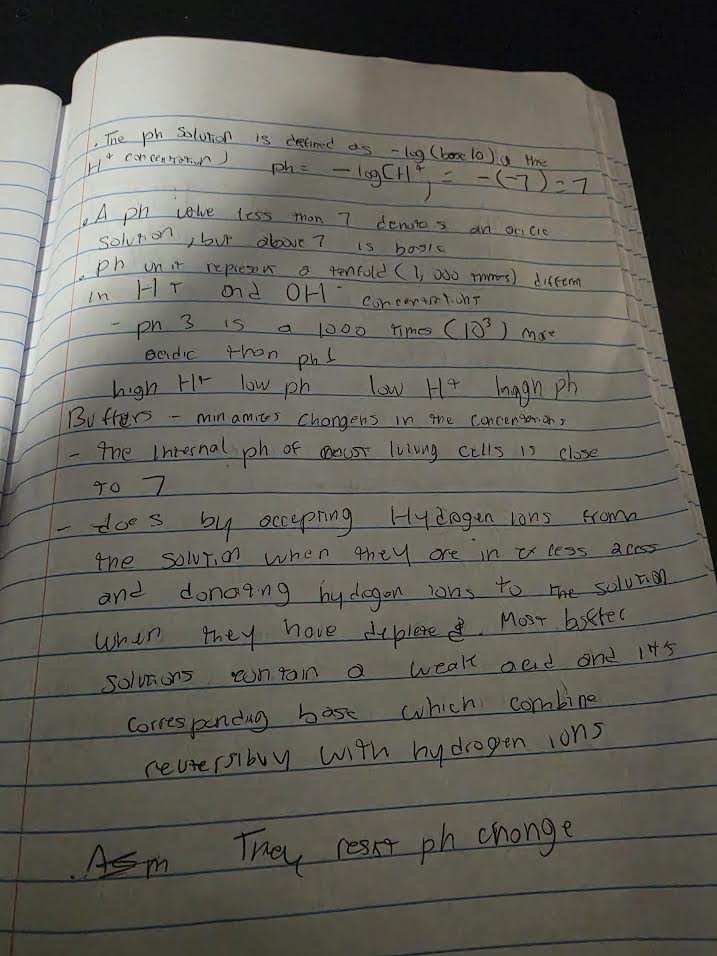 . The ph Solution is defined as -log (base 10) of the
H+ concentration) ph = - log[H+] = -(-7) = 7
. A ph value less than 7 denotes an acidic
solution, but above 7 is basic
. ph unit represent a tenfold (1,000 times) differn
in H+ and OH- concentrations
- ph 3 is a 1000 times (10³) more
acidic than ph
high H+ low ph low H+ higgh ph
Buffers - minamites changens in the concentrations
- the internal ph of most living cells is close
to 7
- does by accepting Hydrogen ions from
the solution when they are in excess acess
and donating hydogen ions to the solution
when they have deplete d. Most buffer
solutions contain a weak acid and its
corresponding base which combine
reversibly with hydrogen ions
. They resist ph change